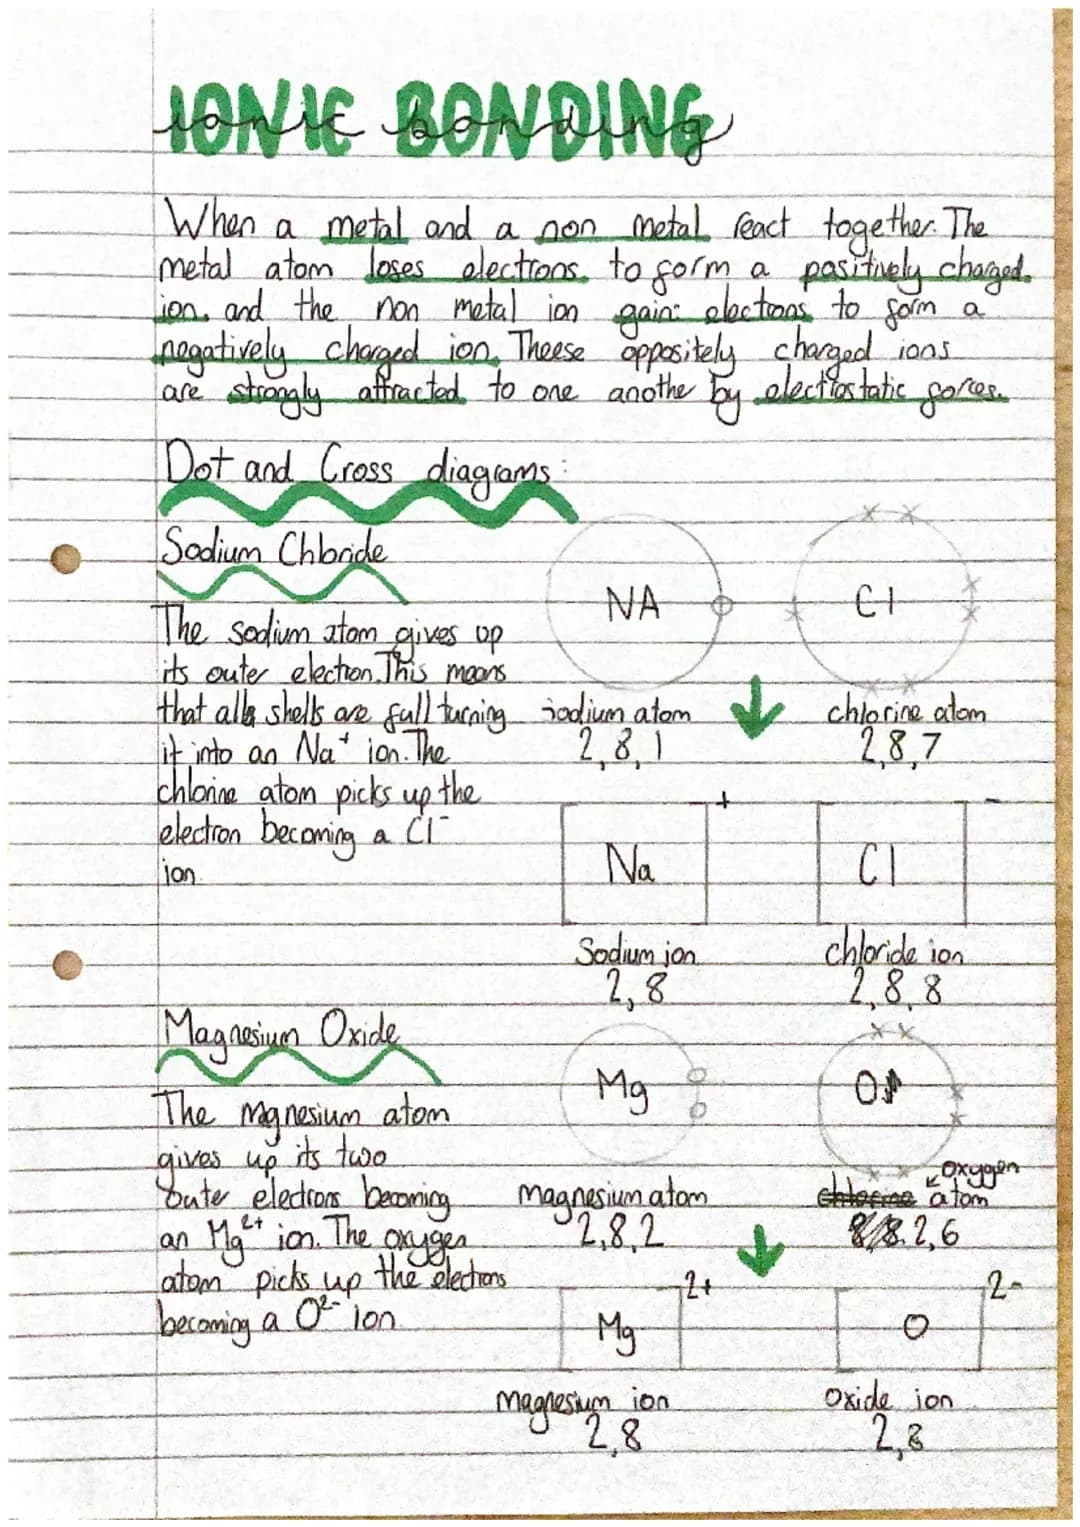 IONIC BONDING
ionic bonding
When a metal and a non metal react together. The
metal atom loses electrons to form a positively charged
ion. and the non metal ion gains electons to form a
negatively charged ion. Theese oppositely charged ions
are strongly attracted to one anothe by electrostatic forces.
Dot and Cross diagrams:
Sodium Chloride
NA
Cl
The sodium atom gives up
its outer electron. This means
that all shells are full turning
it into an Na⁺ ion. The
chlorine atom picks up the
electron becoming a Cl⁻
ion.
sodium atom
2,8,1
chlorine atom
2,8,7
Na
+
Cl
-
Sodium ion
2,8
chloride ion
2,8,8
Magnesium Oxide
Mg
O
The magnesium atom
gives up its two
outer electrons becoming
an Mg²⁺ ion. The oxygen
atom picks up the electrons
becoming a O²⁻ ion
magnesium atom
2,8,2
oxygen
chlorine atom
2,6
Mg
2+
O
2-
magnesium ion
2,8
oxide ion
2,8